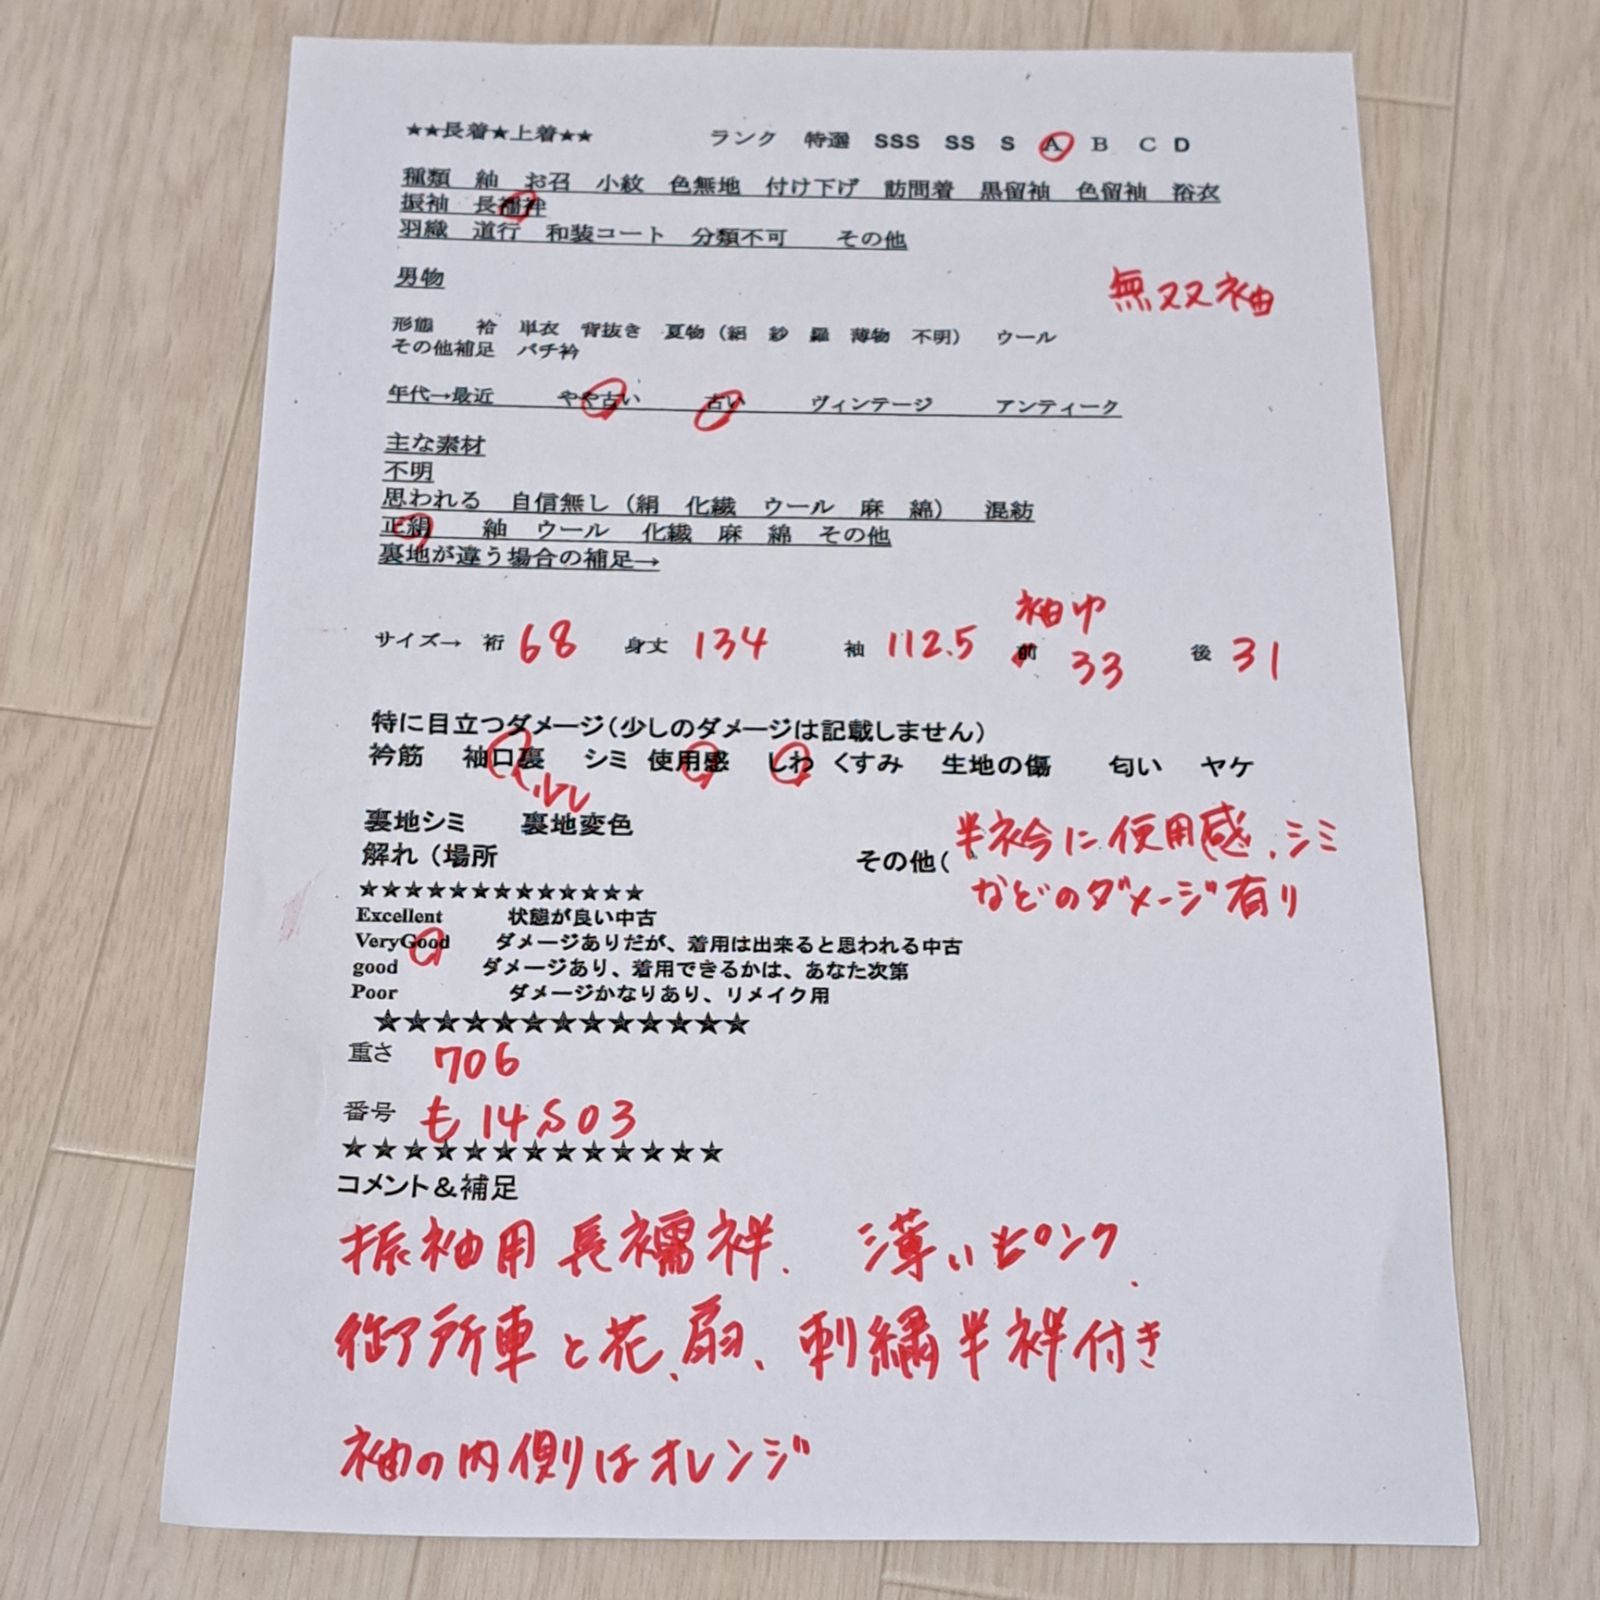 ★★長着★上着★★ ランク 特選 SSS SS S A B C D
種類 紬 お召 小紋 色無地 付け下げ 訪問着 黒留袖 色留袖 浴衣
振袖 長襦袢
羽織 道行 和装コート 分類不可 その他
男物
無双袖
形態 袷 単衣 背抜き 夏物（絽 紗 羅 薄物 不明） ウール
その他補足 バチ衿
年代→最近 やや古い 古い ヴィンテージ アンティーク
主な素材
不明
思われる 自信無し（絹 化繊 ウール 麻 綿） 混紡
正絹 紬 ウール 化繊 麻 綿 その他
裏地が違う場合の補足→
袖巾
サイズ→ 裄 68 身丈 134 袖 112.5 前 33 後 31
特に目立つダメージ（少しのダメージは記載しません）
衿筋 袖口裏 シミ 使用感 しわ くすみ 生地の傷 匂い ヤケ
少し
裏地シミ 裏地変色
解れ（場所 その他（ 半衿に使用感、シミ
などのダメージ有り
★★★★★★★★★★★★★
Excellent 状態が良い中古
VeryGood ダメージありだが、着用は出来ると思われる中古
good ダメージあり、着用できるかは、あなた次第
Poor ダメージかなりあり、リメイク用
★★★★★★★★★★★★★
重さ 706
番号 も14S03
★★★★★★★★★★★★★
コメント＆補足
振袖用長襦袢、薄いピンク、
御所車と花、扇、刺繍半袢付き
袖の内側はオレンジ